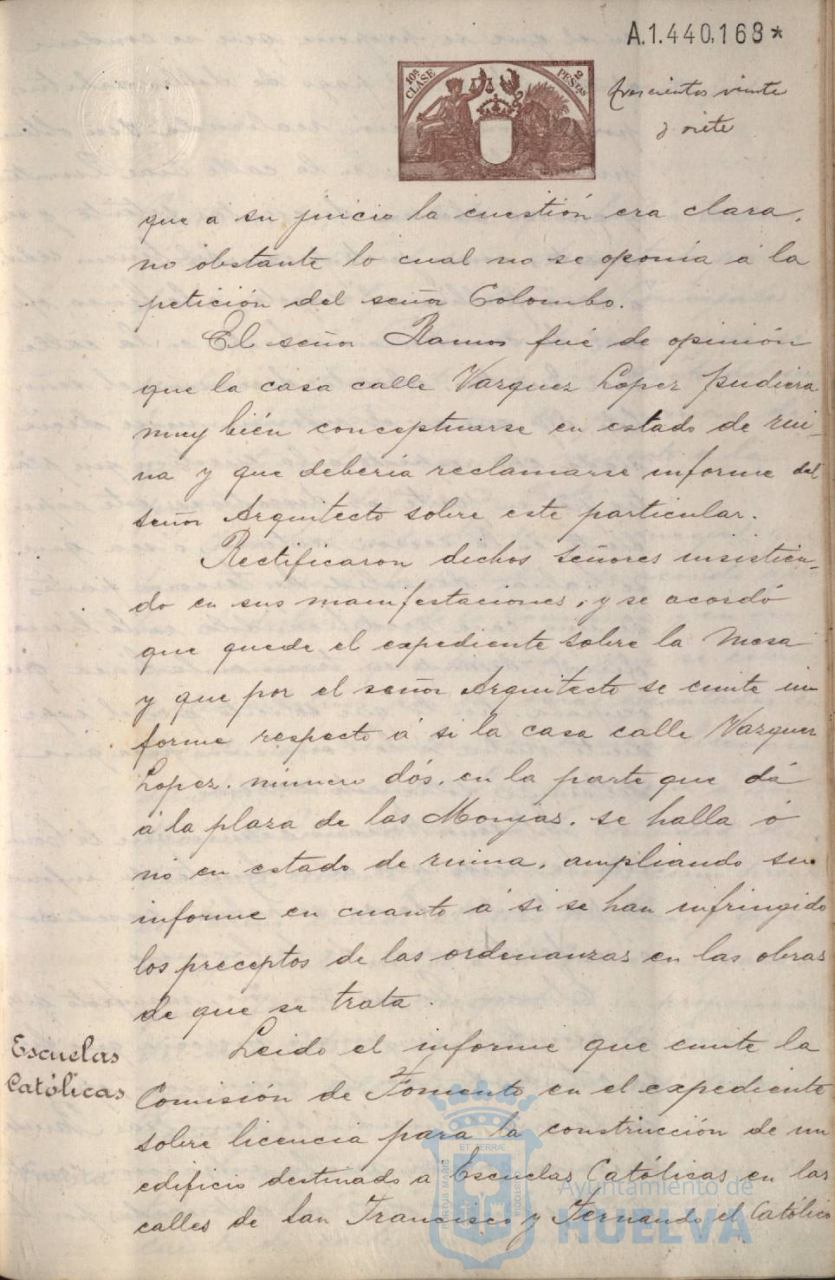 A.1.440,168*
10ª CLASE
2 PESETAS
trescientos veinte
y siete
que a su juicio la cuestión era clara,
no obstante lo cual no se oponía á la
petición del señor Colombo.
El señor Ramos fué de opinión
que la casa calle Vazquez Lopez pudiera
muy bién conceptuarse en estado de rui-
na y que debería reclamarse informe del
señor Arquitecto sobre este particular.
Rectificaron dichos señores insistien-
do en sus manifestaciones, y se acordó
que quede el expediente sobre la mesa
y que por el señor Arquitecto se emita in
forme respecto á si la casa calle Vazquez
Lopez, número dós, en la parte que dá
á la plaza de las Monjas, se halla ó
nó en estado de ruina, ampliando su
informe en cuanto á si se han infringido
los preceptos de las ordenanzas en las obras
de que se trata.
Escuelas
Católicas
Leido el informe que emite la
Comisión de Fomento en el expediente
sobre licencia para la construcción de un
edificio destinado a Escuelas Católicas en las
calles de San Francisco y Fernando el Católico
Ayuntamiento de
HUELVA